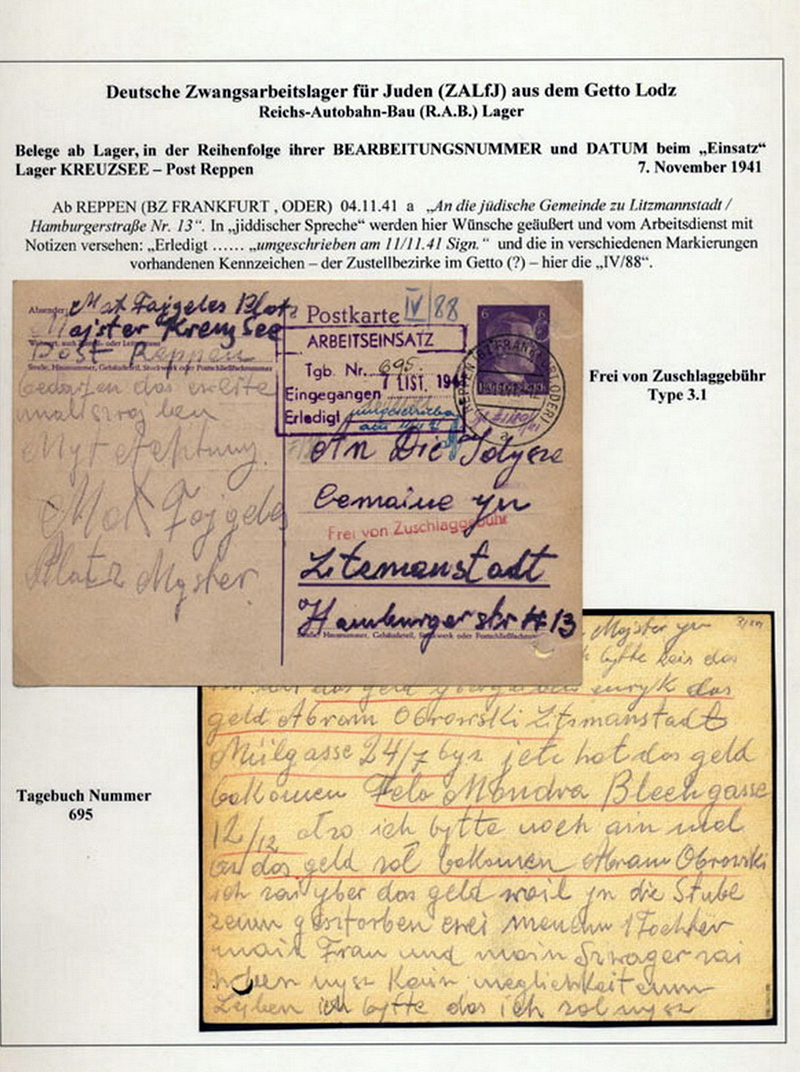 Deutsche Zwangsarbeitslager für Juden (ZALfJ) aus dem Getto Lodz
Reichs-Autobahn-Bau (R.A.B.) Lager
Belege ab Lager, in der Reihenfolge ihrer BEARBEITUNGSNUMMER und DATUM beim „Einsatz“
Lager KREUZSEE – Post Reppen 7. November 1941
Ab REPPEN (BZ FRANKFURT , ODER) 04.11.41 a „An die jüdische Gemeinde zu Litzmannstadt /
Hamburgerstraße Nr. 13“. In „jiddischer Spreche“ werden hier Wünsche geäußert und vom Arbeitsdienst mit
Notizen versehen: „Erledigt …… „umgeschrieben am 11/11.41 Sign.“ und die in verschiedenen Markierungen
vorhandenen Kennzeichen – der Zustellbezirke im Getto (?) – hier die „IV/88“.
Absender: Mat Fajgeles Blotz
Majster Kreuzsee
Post Reppen
Straße, Hausnummer, Gebäudeteil, Stockwerk oder Postschließfachnummer
bedarfen das
Myt Achtung
Mat Fajgeles
Platz Myster
Postkarte IV/88
6 6
ARBEITSEINSATZ
Tgb. Nr. 695.
Eingegangen 7 LIST. 194
Erledigt umgeschrieben
am 11/11 41
An Die Idysze
Gemaine yn
Frei von Zuschlaggebühr
Litzmanstadt
Hamburger str # 13
Straße, Hausnummer, Gebäudeteil, Stockwerk oder Postschließfachnummer
Frei von Zuschlaggebühr
Type 3.1
Tagebuch Nummer
695
Majster yn
bytte das
das geld curyk das
geld Abram Obrowski Litzmanstadt
Mülgasse 24/7 byz jetc hot das geld
bekomen Fela Mondra Blechgasse
12/12 alzo ich bytte noch ain mal
das geld zol bekomen Abram Obrowski
ich zai yber das geld wail yn die Stube
zenen gesztorben cwei menchn 1 Tochter
main Frau und main Szwager zai
hoben nysz Kain meglichkait cum
Leyben ich bytte das ich zol nysz